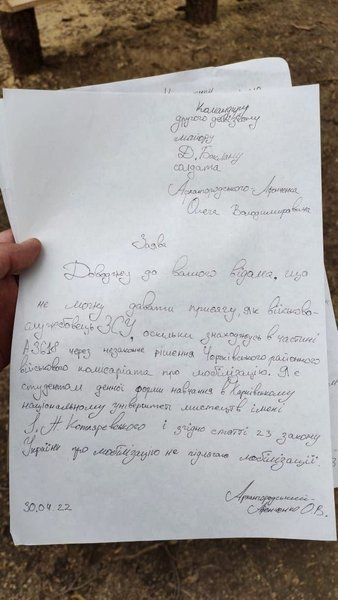 Командиру
другого дивізіону
майору
Д. Баклану
солдата
Арангородського-Лютенка
Олега Володимировича
Заява
Доводжу до вашого відома, що
не можу давати присягу, як військово-
службовець ЗСУ, оскільки знаходжусь в частині
через незаконне рішення районного
військового комісаріата про мобілізацію. Я є
студентом денної форми навчання в Харківському
національному університеті мистецтв імені
І. Котляревського і згідно статті 23 закону
України про мобілізацію не підлягаю мобілізації.
30.04.22
О.В.